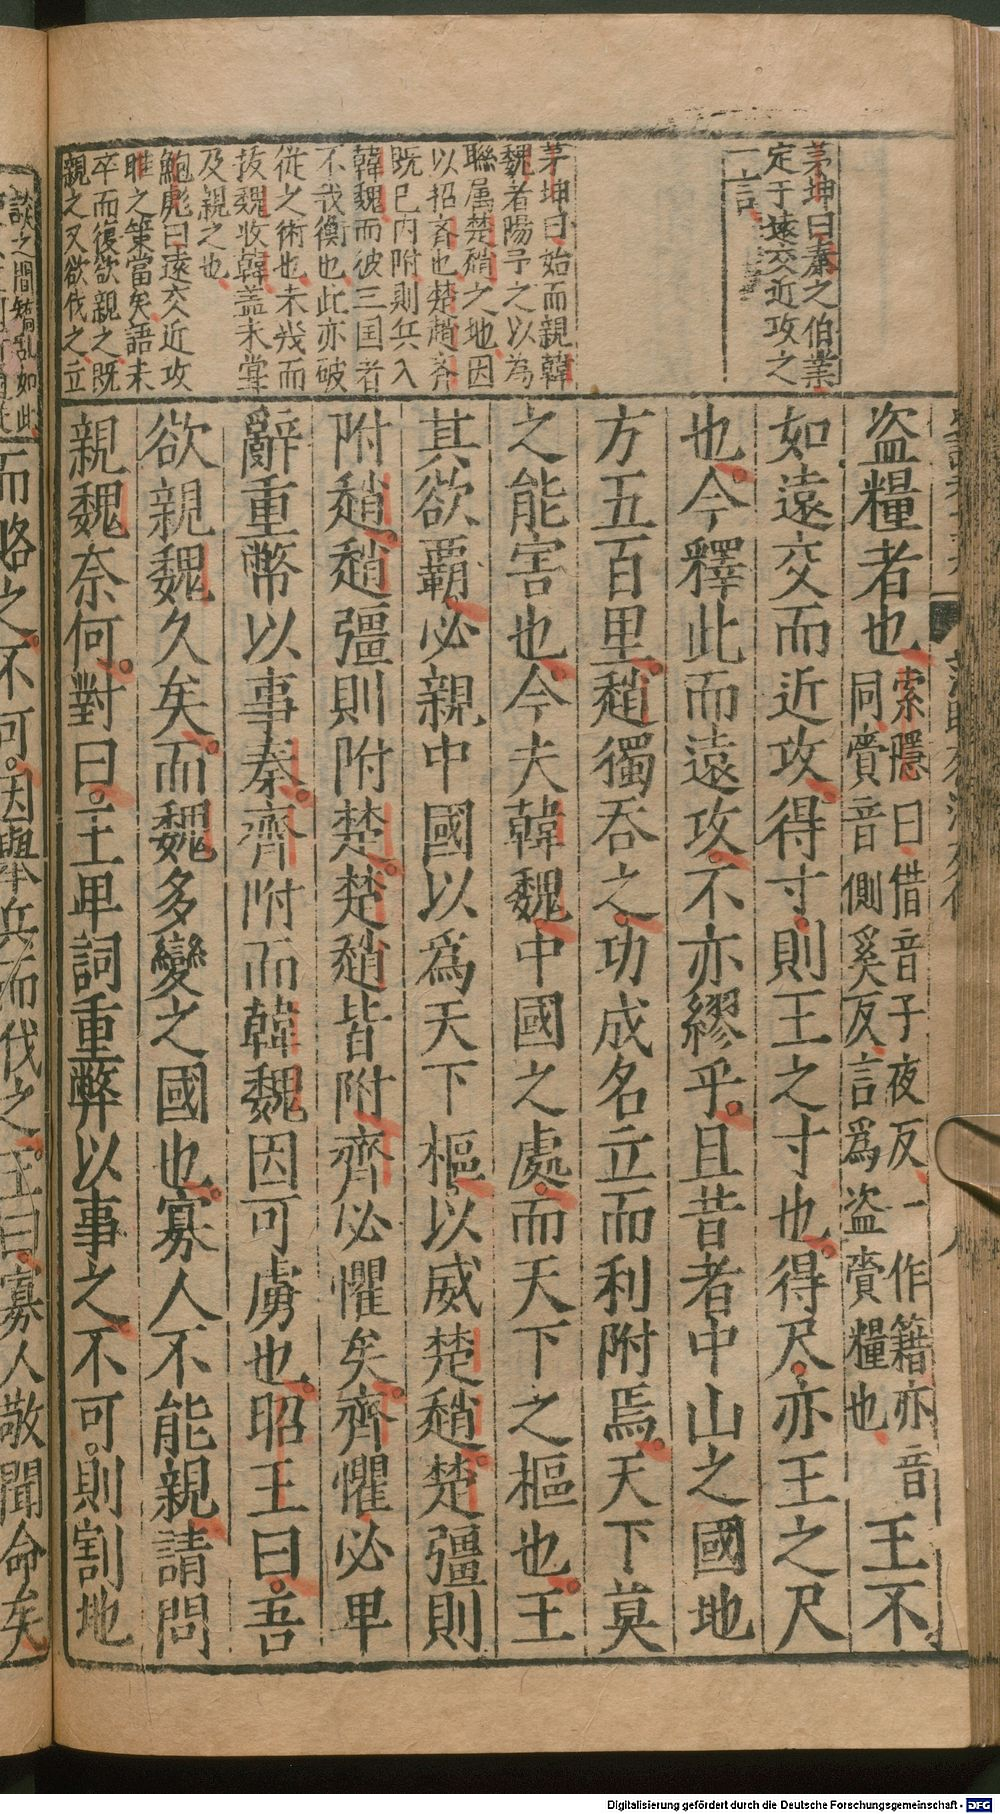 茅坤曰秦之伯業
定于遠交近攻之
一言
茅坤曰始而親韓
魏者陽予之以為
聮属楚趙之地因
以招斉也楚趙斉
既已内附則兵入
韓魏而彼三国者
不我衡也此亦破
従之術也未幾而
抜魏收韓盖未甞
及親之也
鮑彪曰遠交近攻
雎之策當矣語未
卒而復欲親之既
親之又欲伐之立
談之間矛盾如此
盗糧者也索隱曰借音子夜反一作籍亦音
同賷音側奚反言爲盗賷糧也王不
如遠交而近攻得寸則王之寸也得尺亦王之尺
也今釋此而遠攻不亦繆乎且昔者中山之國地
方五百里趙獨吞之功成名立而利附焉天下莫
之能害也今夫韓魏中國之處而天下之樞也王
其欲覇必親中國以爲天下樞以威楚趙楚彊則
附趙趙彊則附楚楚趙皆附齊必懼矣齊懼必卑
辭重幣以事秦齊附而韓魏因可虜也昭王曰吾
欲親魏久矣而魏多變之國也寡人不能親請問
親魏奈何對曰王卑詞重弊以事之不可則割地
而賂之不可因舉兵而伐之王曰寡人敬聞命矣
Digitalisierung gefördert durch die Deutsche Forschungsgemeinschaft - DFG